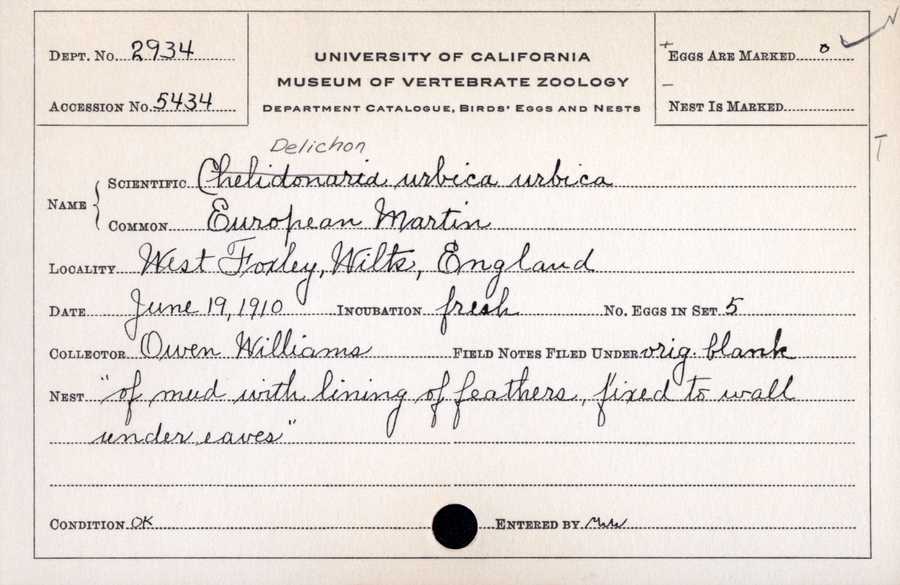 Dept. No. 2934
Accession No. 5434
UNIVERSITY OF CALIFORNIA
MUSEUM OF VERTEBRATE ZOOLOGY
Department Catalogue, Birds' Eggs and Nests
+ Eggs Are Marked
— Nest Is Marked
N
T
Delichon
Name
Scientific Chelidonaria urbica urbica
Common European Martin
Locality West Foxley, Wilts, England
Date June 19, 1910 Incubation fresh No. Eggs in Set 5
Collector Owen Williams Field Notes Filed Under orig. blank
Nest "of mud with lining of feathers, fixed to wall
under eaves"
Condition OK Entered by